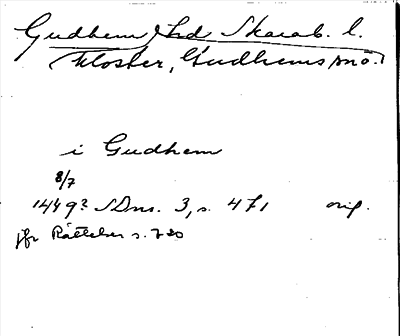 Gudhem hd Skarab. l.
(kloster, Gudhems snö.)
i Gudhem
8/7
1449? SDns. 3, s. 471 orig.
jfr Rättelser s. 720